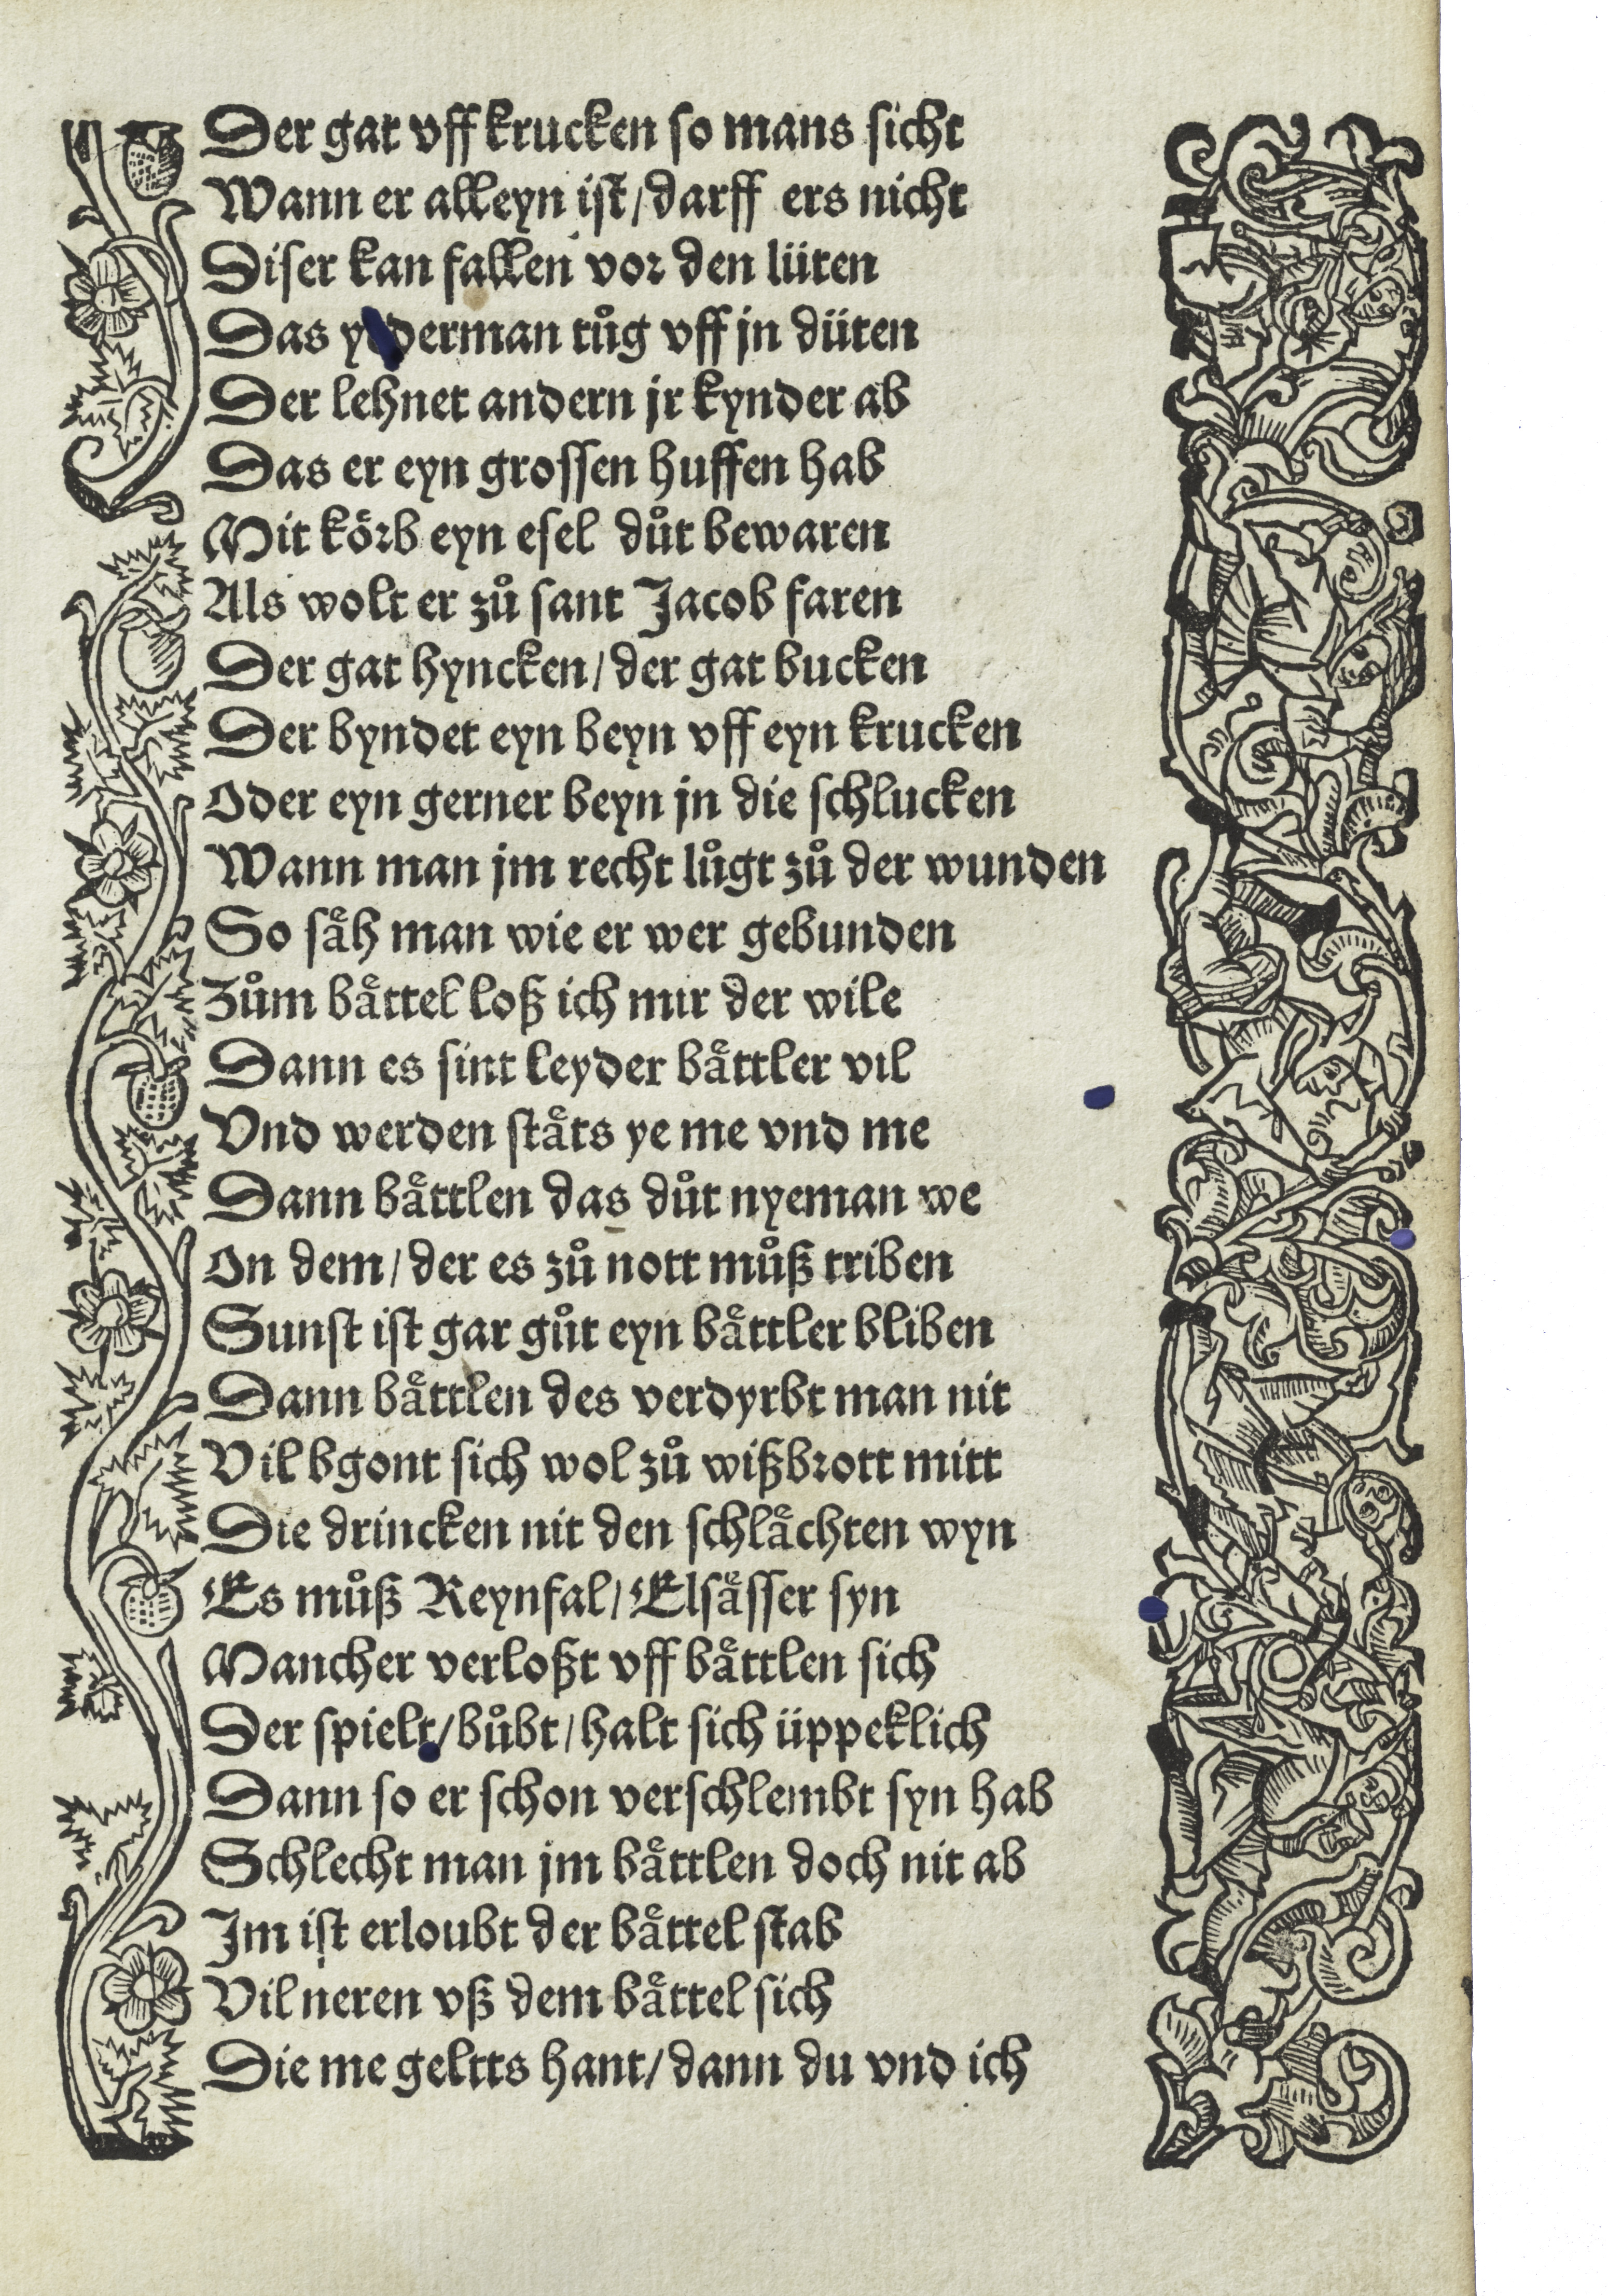 Der gat vff krucken so mans sicht
Wann er alleyn ist/darff ers nicht
Diser kan fallen vor den lüten
Das derman tůg vff jn düten
Der lehnet andern jr kynder ab
Das er eyn grossen huffen hab
Mit koͤrb eyn esel důt bewaren
Als wolt er zů sant Jacob faren
Der gat hyncken/der gat bucken
Der byndet eyn beyn vff eyn krucken
Oder eyn gerner beyn jn die schlucken
Wann man jm recht lůgt zů der wunden
So saͤh man wie er wer gebunden
Zům baͤttel loß ich mir der wile
Dann es sint leyder baͤttler vil
Vnd werden staͤts ye me vnd me
Dann baͤttlen das důt nyeman we
On dem/der es zů nott můß triben
Sunst ist gar gůt eyn baͤttler bliben
Dann baͤttlen des verdyrbt man nit
Vil bgont sich wol zů wißbrott mitt
Die drincken nit den schlaͤchten wyn
Es můß Reynfal/Elsaͤsser syn
Mancher verloßt vff baͤttlen sich
Der spielt/bůbt/halt sich üppeklich
Dann so er schon verschlembt syn hab
Schlecht man jm baͤttlen doch nit ab
Im ist erloubt der baͤttel stab
Vil neren vß dem baͤttel sich
Die me geltts hant/dann du vnd ich